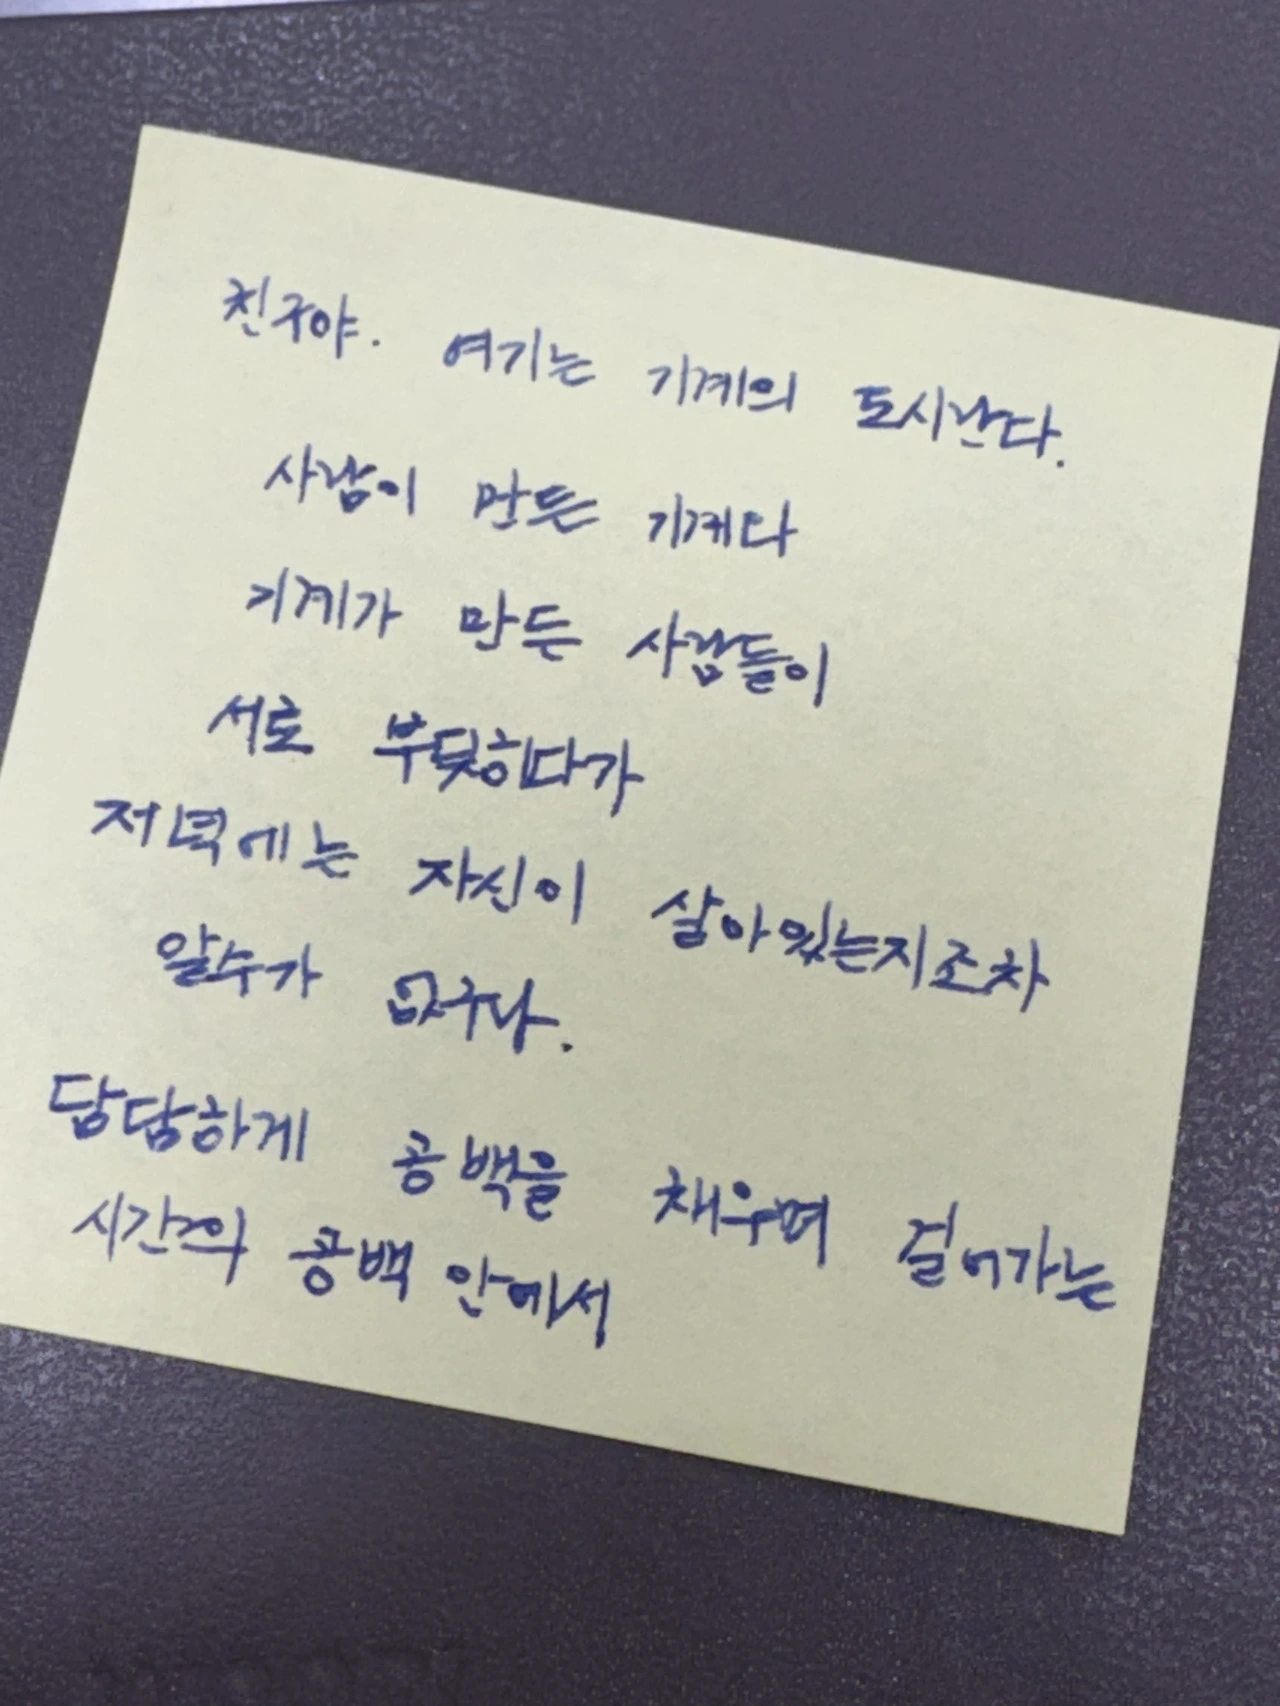 친구야. 여기는 기계의 도시란다.
사람이 만든 기계다
기계가 만든 사람들이
서로 부딪히다가
저녁에는 자신이 살아있는지조차
알수가 없구나.
담담하게 공백을 채우며 걸어가는
시간의 공백 안에서